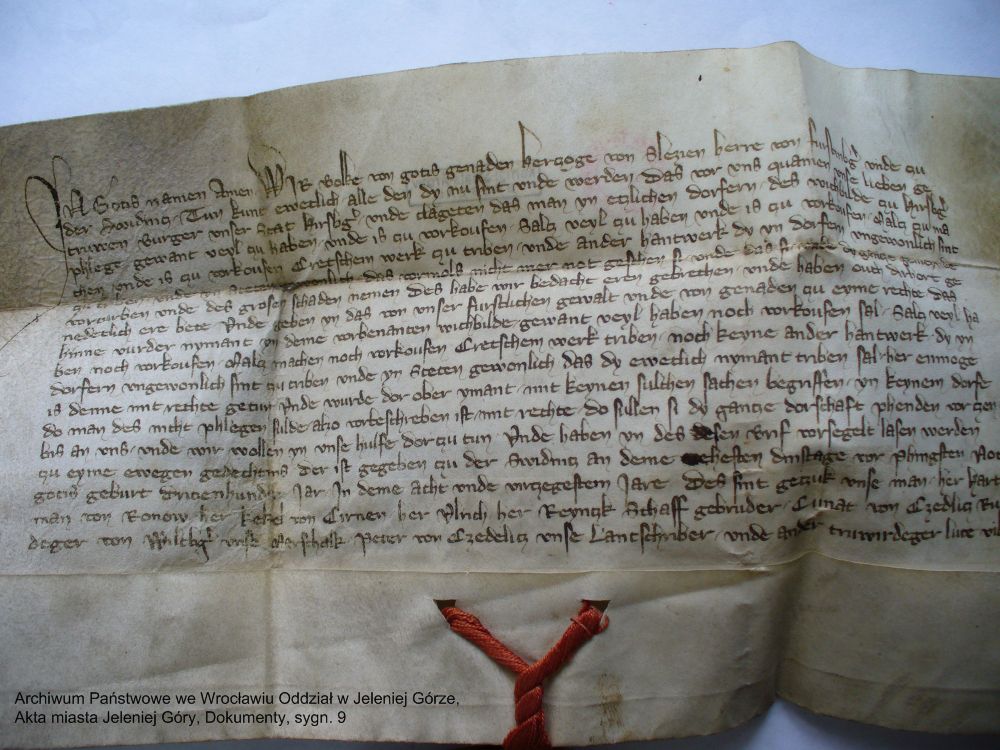 IN Gotis namen Amen WIR Bolke von gotis genaden herczoge von Slezien herre von furstinbg vnde czu
der Swidnicz Tun kunt ewetlich alle den dy nu sint vnde werden das vor vns quamen vnse lieben ge
truwen Burger vnser Stat hirsbg vnde clageten das man yn etzlichen dorfern des wichbilde czu hirsbg
phlege gewant veyl czu haben vnde is czu vorkoufen Salcz veyl czu haben vnde is czu vorkoufen Malcz czu ma
chen vnde is czu vorkoufen Cretschem werk czu triben vnde ander hantwerk dy yn dorfern vngewonlich sint
vnde yn Steten das vormols nicht mer not vnde das
vorturben vnde des grosen schaden nemen Des habe wir bedacht eren gebrechen vnde haben ouch dirhort ge
nedeclich ere bete Vnde geben yn das von vnser furstlichen gewalt vnde von genaden czu eyme rechte das
hinne vurder nymant yn deme vorbenanten wichbilde gewant veyl haben noch vorkoufen sal Salcz veyl ha
ben noch vorkoufen Malcz machen noch vorkoufen Cretschem werk triben noch keyne ander hantwerk dy yn
dorfern vngewonlich sint czu triben vnde yn Steten gewonlich das dy ewetlich nymant triben sal her enmoge
is denne mit rechte getun Vnde wurde dor ober ymant mit keynen sulchen sachen begriffen yn keynem dorfe
do man des nicht phlegen sulde alzo vorbeschreben ist mit rechte do sullen si dy gantze dorschaft phenden vor czen
bis an vns vnde wir wollen yn vnse hulfe dorczu tun Vnde haben yn des desen brif vorsegelt lasen werden
czu eyme ewegen gedechtnis Der ist gegeben czu der Swidnicz an deme nehesten dinstage vor Phingsten Noch
gotis geburt dritzenhundirt Jar In deme acht vnde virczegestem Jare Des sint geczuk vnse man her hart
man von Ronow her Kekel von Cirnen her Vlrich her Reynczk Schaff gebruder Cunat von Czedlicz Ru
deger von vnse Marschalk Peter von Czedelicz vnse Lantschriber vnde ander truwirdeger lute vil
Archiwum Państwowe we Wrocławiu Oddział w Jeleniej Górze,
Akta miasta Jeleniej Góry, Dokumenty, sygn. 9